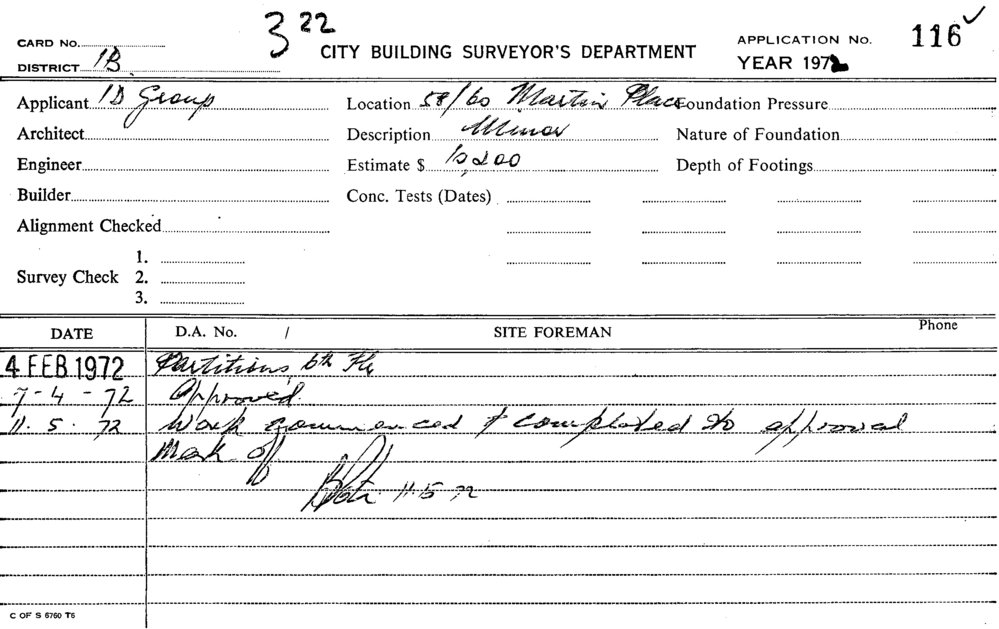 3 22
CARD No.
CITY BUILDING SURVEYOR'S DEPARTMENT
APPLICATION No. 116 ✓
DISTRICT 1B
YEAR 1972
Applicant 1D Group
Location 58/60 Martin Place
Foundation Pressure
Architect
Description Minor
Nature of Foundation
Engineer
Estimate $
Depth of Footings
Builder
Conc. Tests (Dates)
Alignment Checked
Survey Check 1.
2.
3.
DATE D.A. No. / SITE FOREMAN Phone
4 FEB 1972 Partitions 6th Flr
7-4-72 Approved
11.5.72 Work commenced & completed to approval
Mark off
72
C OF S 6760 T6